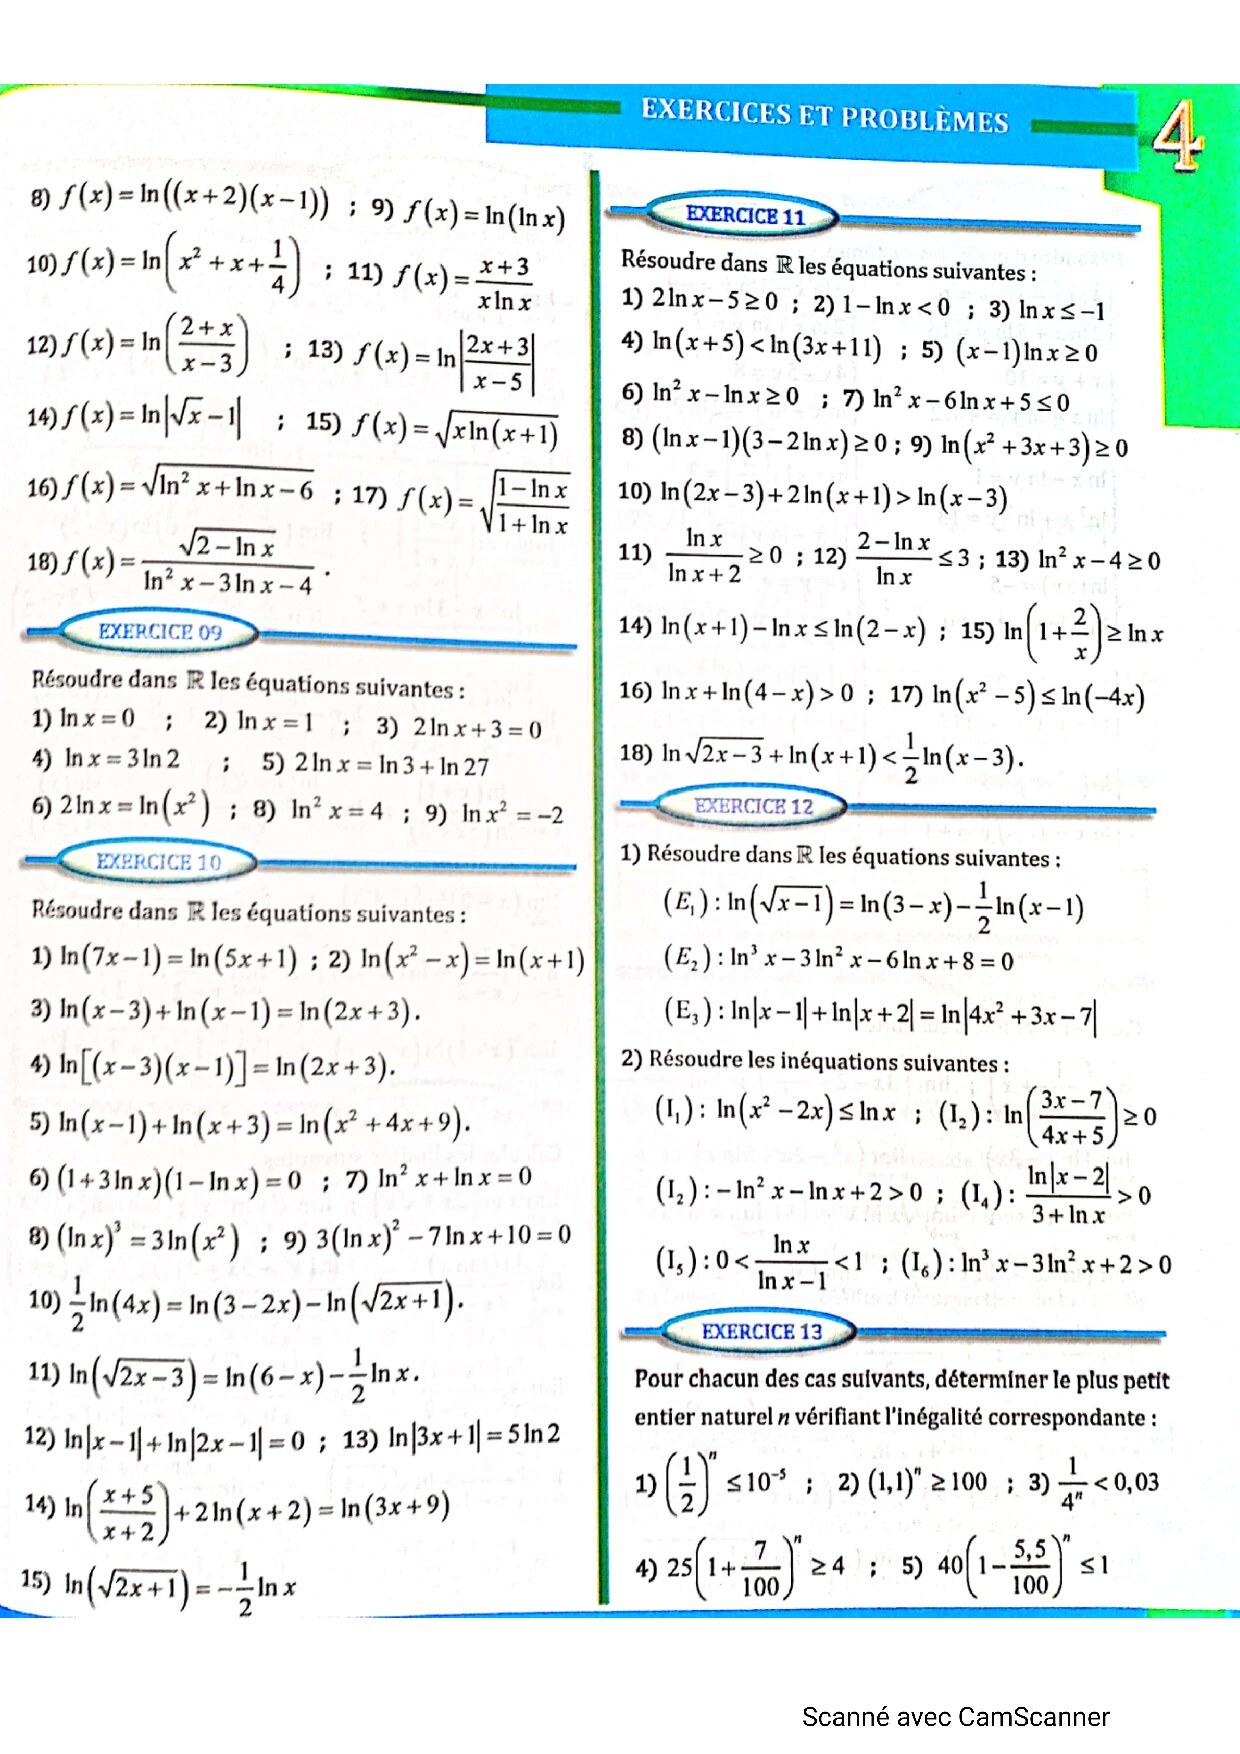 EXERCICES ET PROBLÈMES 4
8) f(x) = ln((x+2)(x−1)) ; 9) f(x) = ln(ln x)
10) f(x) = ln(x² + x + 1/4) ; 11) f(x) = (x+3)/(x ln x)
12) f(x) = ln((2+x)/(x−3)) ; 13) f(x) = ln|(2x+3)/(x−5)|
14) f(x) = ln|√x − 1| ; 15) f(x) = √(x ln(x+1))
16) f(x) = √(ln² x + ln x − 6) ; 17) f(x) = √((1−ln x)/(1+ln x))
18) f(x) = √(2−ln x)/(ln² x − 3 ln x − 4) .
EXERCICE 09
Résoudre dans ℝ les équations suivantes :
1) ln x = 0 ; 2) ln x = 1 ; 3) 2 ln x + 3 = 0
4) ln x = 3 ln 2 ; 5) 2 ln x = ln 3 + ln 27
6) 2 ln x = ln(x²) ; 8) ln² x = 4 ; 9) ln x² = −2
EXERCICE 10
Résoudre dans ℝ les équations suivantes :
1) ln(7x−1) = ln(5x+1) ; 2) ln(x² − x) = ln(x+1)
3) ln(x−3) + ln(x−1) = ln(2x+3).
4) ln[(x−3)(x−1)] = ln(2x+3).
5) ln(x−1) + ln(x+3) = ln(x² + 4x + 9).
6) (1+3 ln x)(1−ln x) = 0 ; 7) ln² x + ln x = 0
8) (ln x)³ = 3 ln(x²) ; 9) 3(ln x)² − 7 ln x + 10 = 0
10) 1/2 ln(4x) = ln(3−2x) − ln(√(2x+1)).
11) ln(√(2x−3)) = ln(6−x) − 1/2 ln x.
12) ln|x−1| + ln|2x−1| = 0 ; 13) ln|3x+1| = 5 ln 2
14) ln((x+5)/(x+2)) + 2 ln(x+2) = ln(3x+9)
15) ln(√(2x+1)) = −1/2 ln x
EXERCICE 11
Résoudre dans ℝ les équations suivantes :
1) 2 ln x − 5 ≥ 0 ; 2) 1 − ln x < 0 ; 3) ln x ≤ −1
4) ln(x+5) < ln(3x+11) ; 5) (x−1) ln x ≥ 0
6) ln² x − ln x ≥ 0 ; 7) ln² x − 6 ln x + 5 ≤ 0
8) (ln x − 1)(3 − 2 ln x) ≥ 0 ; 9) ln(x² + 3x + 3) ≥ 0
10) ln(2x−3) + 2 ln(x+1) > ln(x−3)
11) ln x/(ln x + 2) ≥ 0 ; 12) (2 − ln x)/ln x ≤ 3 ; 13) ln² x − 4 ≥ 0
14) ln(x+1) − ln x ≤ ln(2−x) ; 15) ln(1 + 2/x) ≥ ln x
16) ln x + ln(4−x) > 0 ; 17) ln(x² − 5) ≤ ln(−4x)
18) ln √(2x−3) + ln(x+1) < 1/2 ln(x−3).
EXERCICE 12
1) Résoudre dans ℝ les équations suivantes :
(E₁) : ln(√(x−1)) = ln(3−x) − 1/2 ln(x−1)
(E₂) : ln³ x − 3 ln² x − 6 ln x + 8 = 0
(E₃) : ln|x−1| + ln|x+2| = ln|4x² + 3x − 7|
2) Résoudre les inéquations suivantes :
(I₁) : ln(x² − 2x) ≤ ln x ; (I₂) : ln((3x−7)/(4x+5)) ≥ 0
(I₂) : − ln² x − ln x + 2 > 0 ; (I₄) : ln|x−2|/(3 + ln x) > 0
(I₅) : 0 < ln x/(ln x − 1) < 1 ; (I₆) : ln³ x − 3 ln² x + 2 > 0
EXERCICE 13
Pour chacun des cas suivants, déterminer le plus petit
entier naturel n vérifiant l'inégalité correspondante :
1) (1/2)ⁿ ≤ 10⁻⁵ ; 2) (1,1)ⁿ ≥ 100 ; 3) 1/4ⁿ < 0,03
4) 25(1 + 7/100)ⁿ ≥ 4 ; 5) 40(1 − 5,5/100)ⁿ ≤ 1
Scanné avec CamScanner